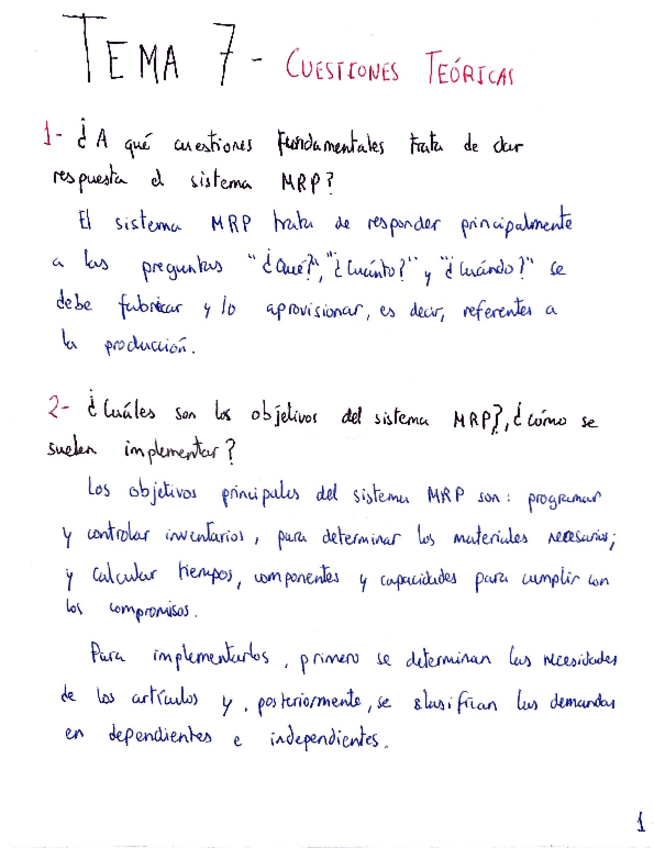 TEMA 7 - CUESTIONES TEÓRICAS
1- ¿A qué cuestiones fundamentales trata de dar
respuesta el sistema MRP?
El sistema MRP trata de responder principalmente
a las preguntas "¿Qué?", "¿Cuánto?" y "¿Cuándo?" se
debe fabricar y/o aprovisionar, es decir, referentes a
la producción.
2- ¿Cuáles son los objetivos del sistema MRP?, ¿cómo se
suelen implementar?
Los objetivos principales del sistema MRP son: programar
y controlar inventarios, para determinar los materiales necesarios;
y calcular tiempos, componentes y capacidades para cumplir con
los compromisos.
Para implementarlos, primero se determinan las necesidades
de los artículos y, posteriormente, se clasifican las demandas
en dependientes e independientes.
1